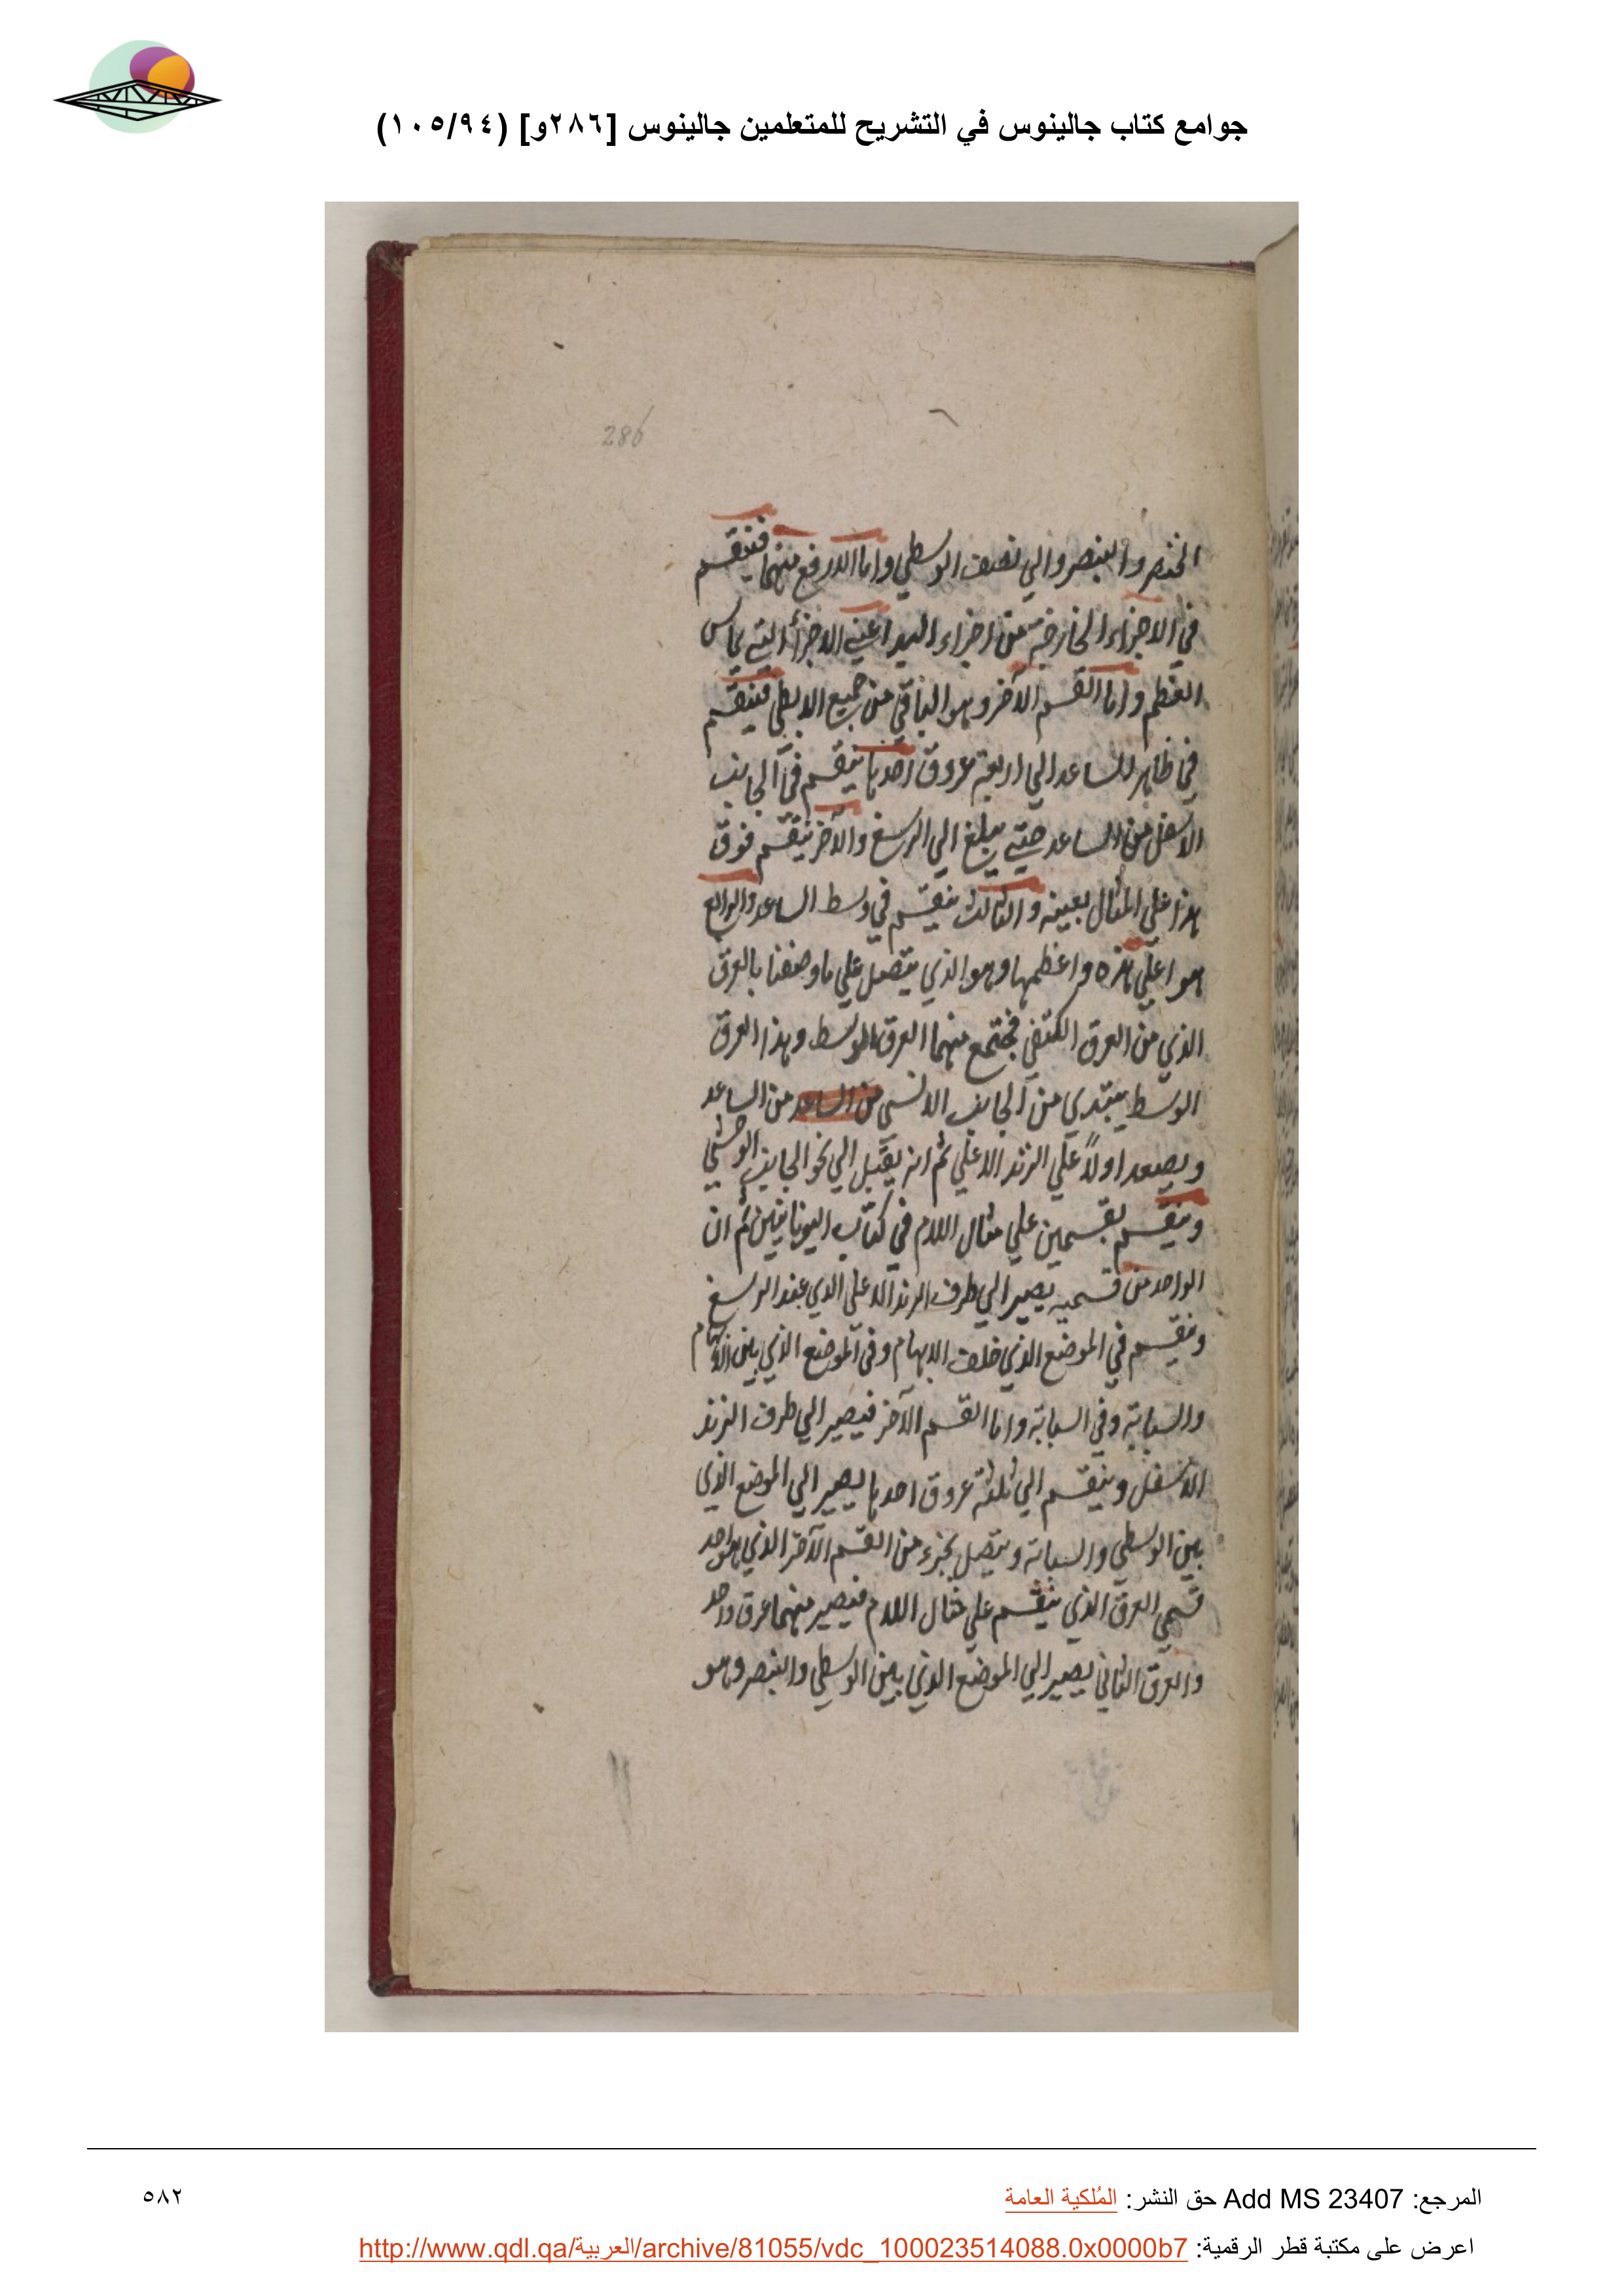 جوامع كتاب جالينوس في التشريح للمتعلمين جالينوس [٢٨٦و] (١٠٥/٩٤)
286
الخنصر والبنصر والي نصف الوسطي واما الارفع منهما فينقسم
في الاجزاء الخارجة من اجزاء اليد اعني الاجزأ التي تماس
العظم واما القسم الآخر وهو الباقي من جميع الابطي فينقسم
في ظاهر الساعد الي اربعة عروق احدها ينقسم في الجانب
الاسفل من الساعد حتي يبلغ الي الرسغ والآخر ينقسم فوق
هذا علي المثال بعينه والثالث ينقسم في وسط الساعد والرابع
هو اعلي هذه واعظمها وهو الذي يتصل علي ما وصفنا بالعرق
الذي من العرق الكتفي فيجتمع منهما العرق الوسط وهذا العرق
الوسط يبتدي من الجانب الانسي من الساعد من الساعد
ويصعد اولاً علي الزند الاعلي ثم انه يقبل الي نحو الجانب الوحشي
وينقسم بقسمين علي مثال اللام في كتاب اليونانيين ثم ان
الواحد من قسميه يصير الي طرف الزند الاعلي الذي عند الرسغ
وينقسم في الموضع الذي خلف الابهام وفي الموضع الذي بين الابهام
والسبابة وفي السبابة واما القسم الآخر فيصير الي طرف الزند
الاسفل وينقسم الي ثلثة عروق احدها يصير الي الموضع الذي
بين الوسطي والسبابة ويتصل بجزء من القسم الآخر الذي هو احد
قسمي العرق الذي ينقسم علي مثال اللام فيصير منهما عرق واحد
والعرق الثاني يصير الي الموضع الذي بين الوسطي والبنصر وهو
المرجع: Add MS 23407 حق النشر: المُلكية العامة
٥٨٢
اعرض على مكتبة قطر الرقمية: http://www.qdl.qa/العربية/archive/81055/vdc_100023514088.0x0000b7